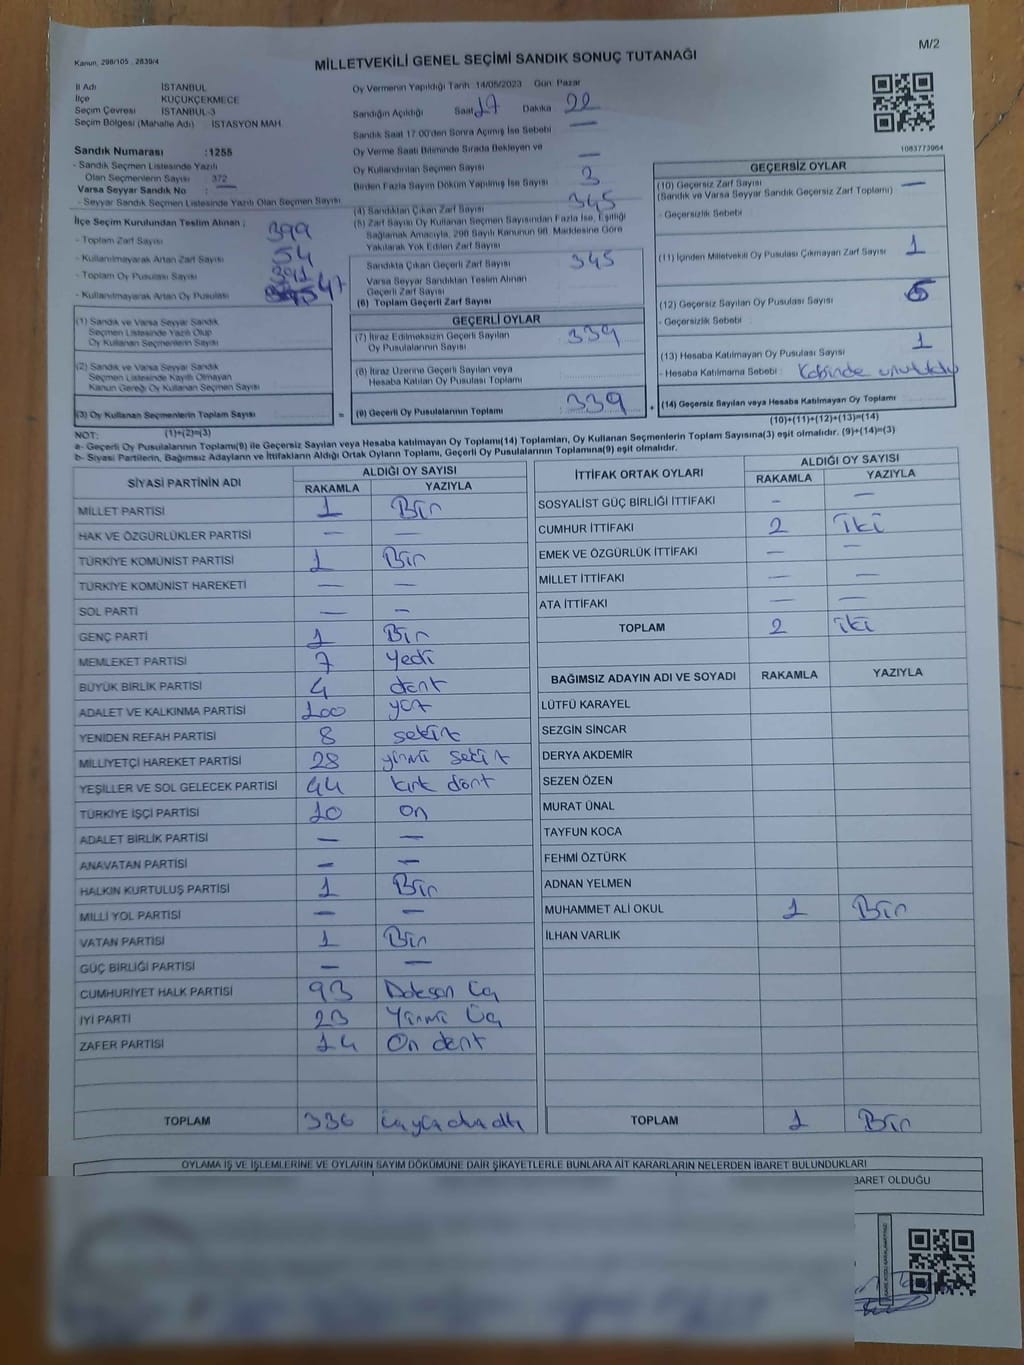 M/2
Kanun, 298/105 , 2839/4
MİLLETVEKİLİ GENEL SEÇİMİ SANDIK SONUÇ TUTANAĞI
İl Adı İSTANBUL
İlçe KÜÇÜKÇEKMECE
Seçim Çevresi İSTANBUL-3
Seçim Bölgesi (Mahalle Adı) : İSTASYON MAH.
Sandık Numarası :1255
- Sandık Seçmen Listesinde Yazılı
Olan Seçmenlerin Sayısı : 372
Varsa Seyyar Sandık No : —
- Seyyar Sandık Seçmen Listesinde Yazılı Olan Seçmen Sayısı
İlçe Seçim Kurulundan Teslim Alınan ;
- Toplam Zarf Sayısı 399
- Kullanılmayarak Artan Zarf Sayısı 54
- Toplam Oy Pusulası Sayısı 391
- Kullanılmayarak Artan Oy Pusulası 47
(1) Sandık ve Varsa Seyyar Sandık
Seçmen Listesinde Yazılı Olup
Oy Kullanan Seçmenlerin Sayısı
(2) Sandık ve Varsa Seyyar Sandık
Seçmen Listesinde Kayıtlı Olmayan
Kanun Gereği Oy Kullanan Seçmen Sayısı
(3) Oy Kullanan Seçmenlerin Toplam Sayısı
(1)+(2)=(3)
Oy Vermenin Yapıldığı Tarih :14/05/2023 Gün: Pazar
Sandığın Açıldığı Saat 17 Dakika 22
Sandık Saat 17:00'den Sonra Açımış İse Sebebi —
Oy Verme Saati Bitiminde Sırada Bekleyen ve
Oy Kullandırılan Seçmen Sayısı —
Birden Fazla Sayım Döküm Yapılmış İse Sayısı 3
(4) Sandıktan Çıkan Zarf Sayısı 345
(5) Zarf Sayısı Oy Kullanan Seçmen Sayısından Fazla İse, Eşitliği
Sağlamak Amacıyla, 298 Sayılı Kanunun 98. Maddesine Göre
Yakılarak Yok Edilen Zarf Sayısı
Sandıkta Çıkan Geçerli Zarf Sayısı 345
Varsa Seyyar Sandıktan Teslim Alınan
Geçerli Zarf Sayısı
(6) Toplam Geçerli Zarf Sayısı
GEÇERLİ OYLAR
(7) İtiraz Edilmeksizin Geçerli Sayılan
Oy Pusulalarının Sayısı 339
(8) İtiraz Üzerine Geçerli Sayılan veya
Hesaba Katılan Oy Pusulası Toplamı
= (9) Geçerli Oy Pusulalarının Toplamı : 339 +
1083773964
GEÇERSİZ OYLAR
(10) Geçersiz Zarf Sayısı —
(Sandık ve Varsa Seyyar Sandık Geçersiz Zarf Toplamı)
- Geçersizlik Sebebi
(11) İçinden Milletvekili Oy Pusulası Çıkmayan Zarf Sayısı 1
(12) Geçersiz Sayılan Oy Pusulası Sayısı
- Geçersizlik Sebebi
(13) Hesaba Katılmayan Oy Pusulası Sayısı 1
- Hesaba Katılmama Sebebi : Kabinde unutuldu
(14) Geçersiz Sayılan veya Hesaba Katılmayan Oy Toplamı
(10)+(11)+(12)+(13)=(14)
NOT:
a- Geçerli Oy Pusulalarının Toplamı(9) ile Geçersiz Sayılan veya Hesaba katılmayan Oy Toplamı(14) Toplamları, Oy Kullanan Seçmenlerin Toplam Sayısına(3) eşit olmalıdır. (9)+(14)=(3)
b- Siyasi Partilerin, Bağımsız Adayların ve İttifakların Aldığı Ortak Oyların Toplamı, Geçerli Oy Pusulalarının Toplamına(9) eşit olmalıdır.
SİYASİ PARTİNİN ADI ALDIĞI OY SAYISI
RAKAMLA YAZIYLA
MİLLET PARTİSİ 1 Bir
HAK VE ÖZGÜRLÜKLER PARTİSİ — —
TÜRKİYE KOMÜNİST PARTİSİ 1 Bir
TÜRKİYE KOMÜNİST HAREKETİ — —
SOL PARTİ — —
GENÇ PARTİ 1 Bir
MEMLEKET PARTİSİ 7 yedi
BÜYÜK BİRLİK PARTİSİ 4 dört
ADALET VE KALKINMA PARTİSİ 100 yüz
YENİDEN REFAH PARTİSİ 8 sekiz
MİLLİYETÇİ HAREKET PARTİSİ 28 yirmi sekiz
YEŞİLLER VE SOL GELECEK PARTİSİ 44 kırk dört
TÜRKİYE İŞÇİ PARTİSİ 10 on
ADALET BİRLİK PARTİSİ — —
ANAVATAN PARTİSİ — —
HALKIN KURTULUŞ PARTİSİ 1 Bir
MİLLİ YOL PARTİSİ — —
VATAN PARTİSİ 1 Bir
GÜÇ BİRLİĞİ PARTİSİ — —
CUMHURİYET HALK PARTİSİ 93 Doksan üç
İYİ PARTİ 23 Yirmi üç
ZAFER PARTİSİ 14 On dört
TOPLAM 336 üçyüzotuzaltı
İTTİFAK ORTAK OYLARI ALDIĞI OY SAYISI
RAKAMLA YAZIYLA
SOSYALİST GÜÇ BİRLİĞİ İTTİFAKI — —
CUMHUR İTTİFAKI 2 iki
EMEK VE ÖZGÜRLÜK İTTİFAKI — —
MİLLET İTTİFAKI — —
ATA İTTİFAKI — —
TOPLAM 2 iki
BAĞIMSIZ ADAYIN ADI VE SOYADI RAKAMLA YAZIYLA
LÜTFÜ KARAYEL
SEZGİN SİNCAR
DERYA AKDEMİR
SEZEN ÖZEN
MURAT ÜNAL
TAYFUN KOCA
FEHMİ ÖZTÜRK
ADNAN YELMEN
MUHAMMET ALİ OKUL 1 Bir
İLHAN VARLIK
TOPLAM 1 Bir
OYLAMA İŞ VE İŞLEMLERİNE VE OYLARIN SAYIM DÖKÜMÜNE DAİR ŞİKAYETLERLE BUNLARA AİT KARARLARIN NELERDEN İBARET BULUNDUKLARI
BARET OLDUĞU